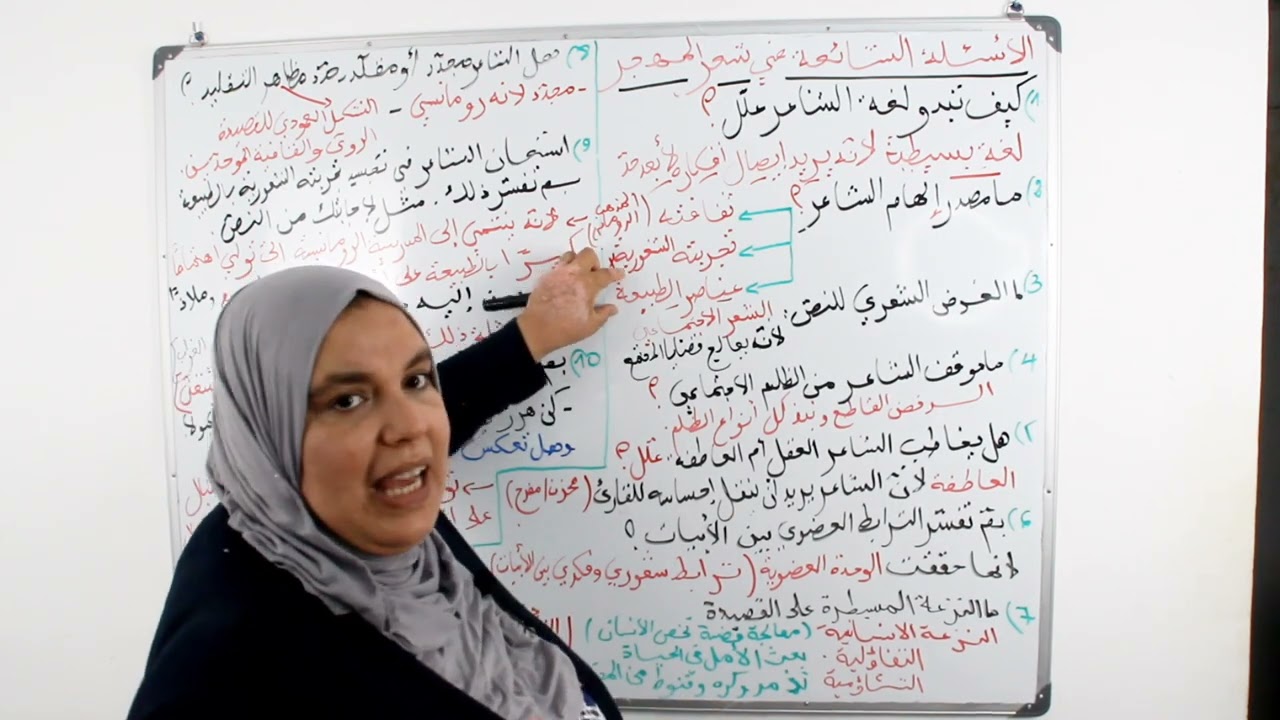 الأسئلة الشائعة في شعر المهجر
1) كيف تبدو لغة الشاعر علّل؟
لغة بسيطة لأنه يريد إيصال أفكاره لأبعد حد
2) ما مصدر إلهام الشاعر؟
ثقافته (المذهب الرومانسي)
تجربته الشعورية
عناصر الطبيعة
3) ما الغرض الشعري للنص: الشعر الاجتماعي
لأنه يعالج قضايا
4) ما موقف الشاعر من الظلم الاجتماعي؟
الرفض القاطع ونبذ كل أنواع الظلم.
هل يخاطب الشاعر العقل أم العاطفة علّل؟
العاطفة لأنّ الشاعر يريد أن ينقل إحساسه للقارئ (محزن/مفرح)
6) بم تفسّر الترابط العضوي بين الأبيات؟
لأنها حققت الوحدة العضوية (ترابط شعوري وفكري بين الأبيات)
7) ما النزعة المسيطرة على القصيدة
النزعة الإنسانية (معالجة قضية تخص الإنسان)
التفاؤلية: بعث الأمل في الحياة
التشاؤمية تذمر وكره وقنوط من
8) هل الشاعر مجدّد أو مقلّد حدّد مظاهر التقليد؟
- مجدّد لأنه رومانسي - الشكل العمودي للقصيدة
الروي والقافية الموحدين.
9) استعان الشاعر في تجسيد تجربته الشعورية بالطبيعة
بم تفسّر ذلك. مثّل لإجابتك من النص
لأنه ينتمي إلى المدرسة الرومانسية التي تولي اهتمامًا
بالطبيعة
إليه
ذلك
10)
وهل تعكس
على